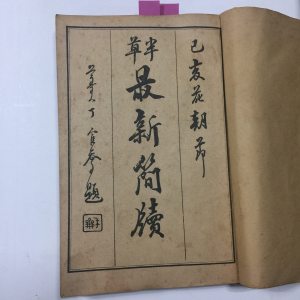 己亥花朝節
半草
最新簡牘
題